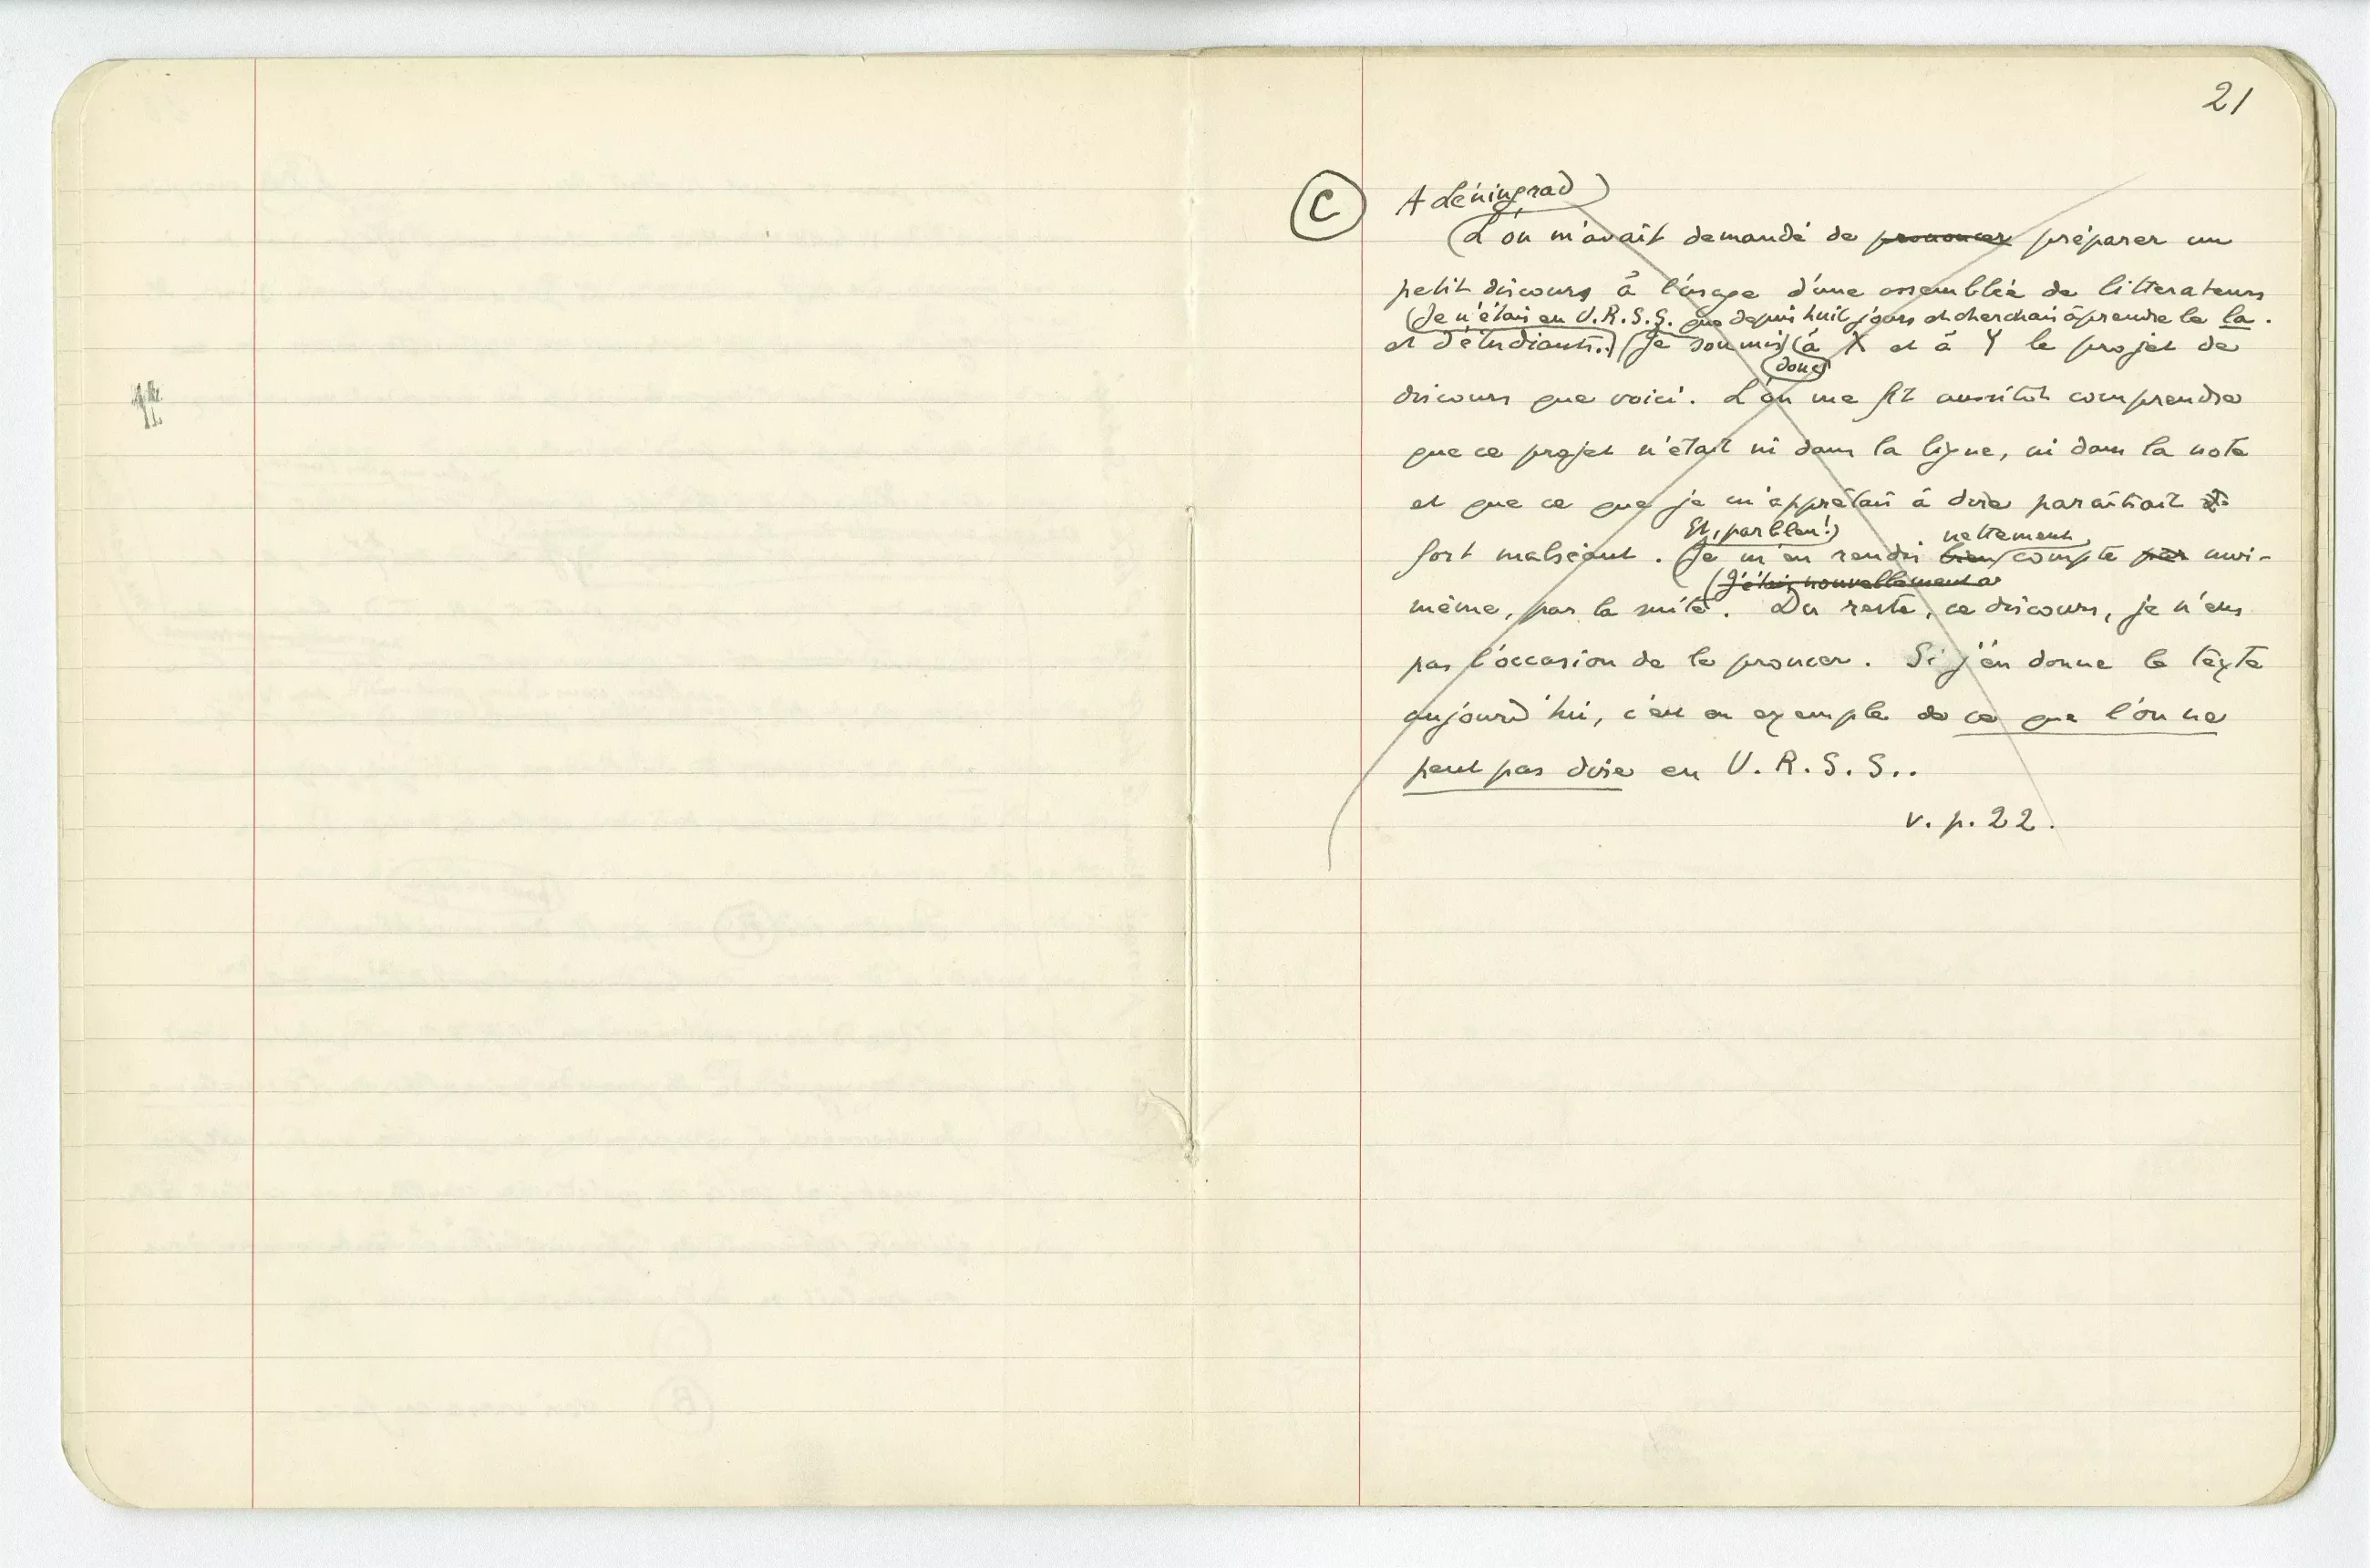 21
C
A Léningrad
L'on m'avait demandé de prononcer préparer un
petit discours à l'usage d'une assemblée de littérateurs
Je n'étais en U.R.S.S. que depuis huit jours et cherchais à prendre le la.
et d'étudiants. Je soumis à X et à Y le projet de
donc
discours que voici. L'on me fit aussitôt comprendre
que ce projet n'était ni dans la ligne, ni dans la note
et que ce que je m'apprêtais à dire paraîtrait
Et, parbleu!
nettement
fort malséant. Je m'en rendis bien compte par moi-
J'étais nouvellement a
même, par la suite. Du reste, ce discours, je n'eus
pas l'occasion de le proncer. Si j'en donne le texte
aujourd'hui, c'est en exemple de ce que l'on ne
peut pas dire en U.R.S.S..
v. p. 22.